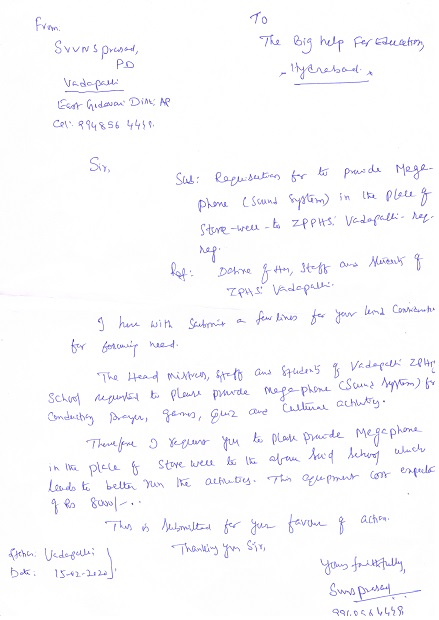 From.
SVVNS prasad,
P.D
Vadapalli
East Godavari Dist. AP
Cel: 994856 4491.
To
The Big help For Education,
Hyderabad.
Sir,
Sub: Requisition for to provide Mega-
phone (Sound System) in the place of
Stove-well-to ZPPHS. Vadapalli-reg-
reg.
Ref: of Hm, Staff and of
ZPHS. Vadapalli.
I here with Submit a few lines for your kind Consideration
for needful.
The Head Mistress, Staff and Students of Vadapalli ZPHS
School requested to please provide megaphone (Sound System) for
Conducting Prayer, games, Quiz and Cultural activity.
Therefore I request you to please provide Megaphone
in the place of Stove well to the above Said School which
leads to better run the activities. This equipment cost
of Rs 8000/-..
This is Submitted for your favour of action.
Thanking you Sir,
Station: Vadapalli
Date: 15-02-2020
Yours faithfully,